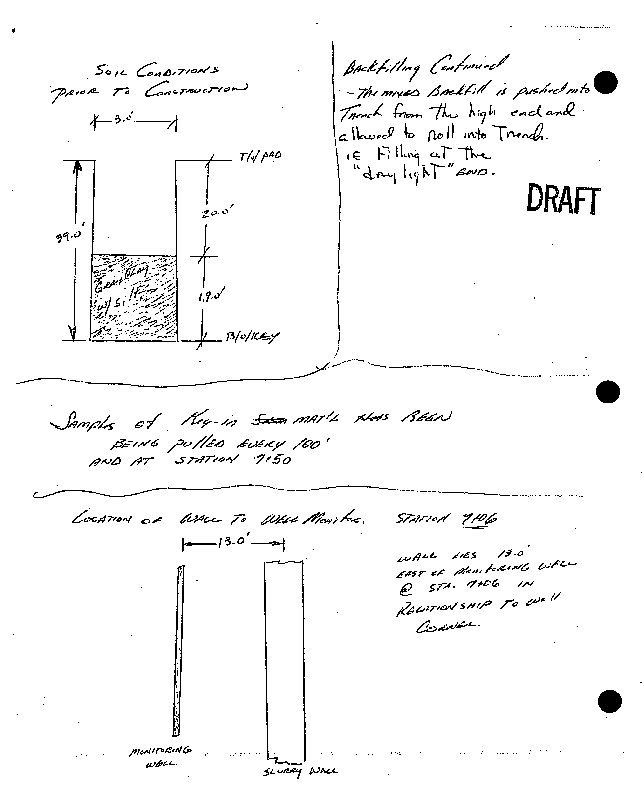 SOIL CONDITIONS
PRIOR TO CONSTRUCTION
3.0'
T/O/PAD
39.0'
20.0'
19.0'
w/ Silt
B/O/KEY
Backfilling Continued
- The mixed Backfill is pushed into
Trench from the high end and
allowed to roll into Trench.
IE Filling at the
"day light" END.
DRAFT
Samples of Key-in MAT'L HAS BEEN
BEING pulled EVERY 100'
AND AT STATION 7+50
LOCATION OF WALL TO WELL Monitor.
STATION 7+06
13.0'
WALL LIES 13.0'
EAST OF MONITORING WELL
@ STA. 7+06 IN
RELATIONSHIP TO WALL
CORNER.
MONITORING
WELL
SLURRY WALL